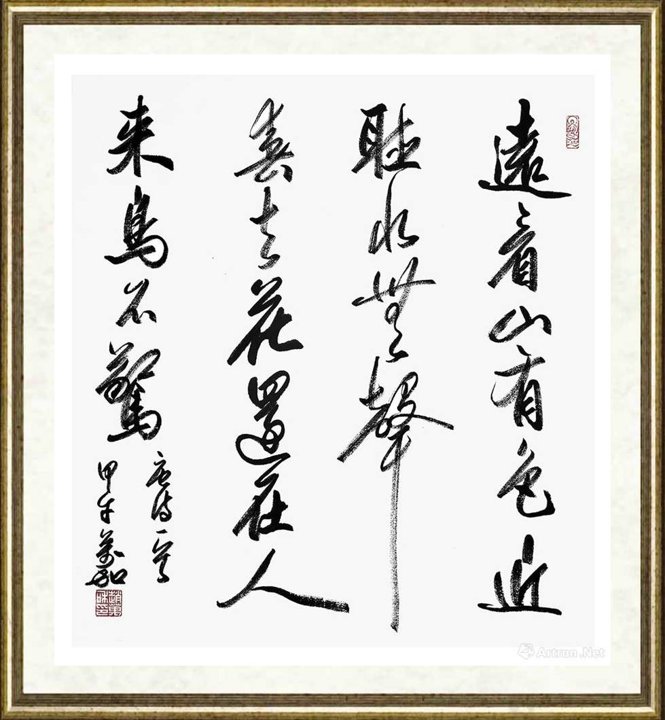 遠看山有色近
聽水無聲
春去花還在人
来鳥不驚
唐诗一首
甲午萬和
Artron.Net